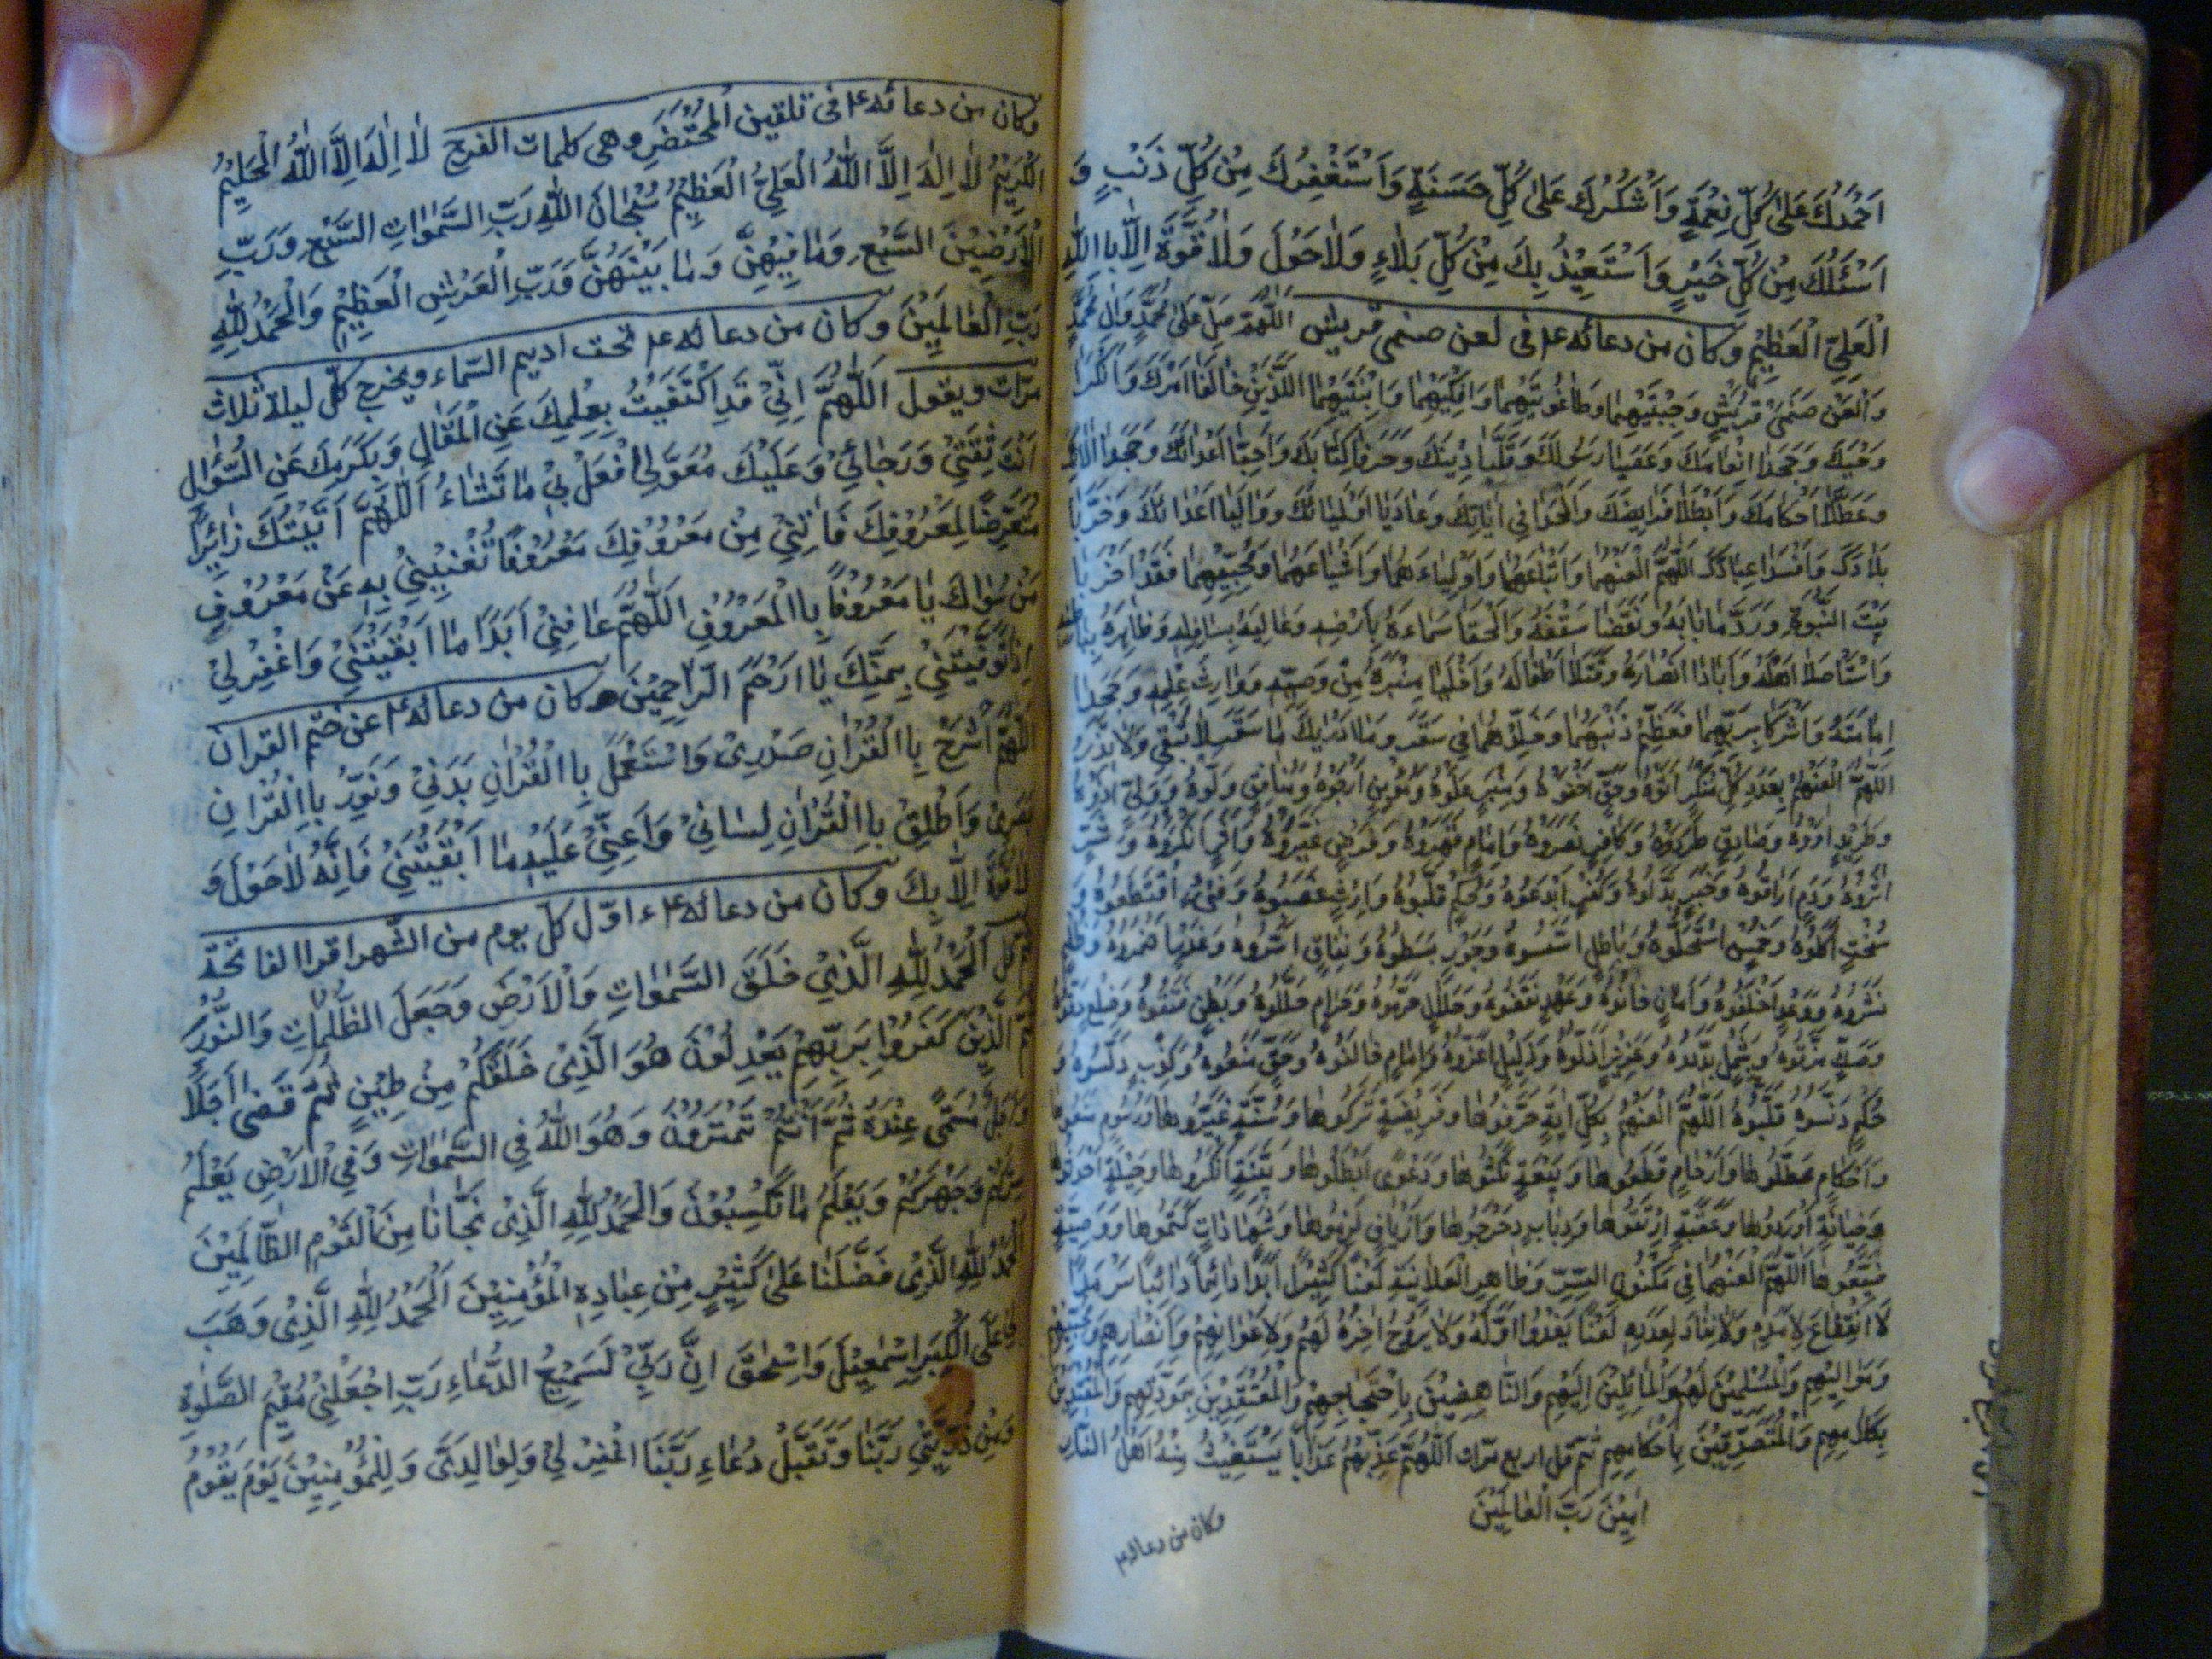 اَحْمَدُكَ عَلىٰ كُلِّ نِعْمَةٍ وَاَشْكُرُكَ عَلىٰ كُلِّ حَسَنَةٍ وَاَسْتَغْفِرُكَ مِنْ كُلِّ ذَنْبٍ وَ
اَسْئَلُكَ مِنْ كُلِّ خَيْرٍ وَاَسْتَعِيْذُ بِكَ مِنْ كُلِّ بَلٰاءٍ وَلٰاحَوْلَ وَلٰاقُوَّةَ اِلّٰا بِااللّٰهِ
الْعَلِيِّ الْعَظِيْمِ وكان من دعائه ع فى لعن صنمى قريش اَللّٰهُمَّ صَلِّ عَلىٰ مُحَمَّدٍ وَاٰلِ مُحَمَّدٍ
وَالْعَنْ صَنَمَىْ قُرَيْشٍ وَجِبْتَيْهِمٰا وَطٰاغُوتَيْهِمٰا وَاِفْكَيْهِمٰا وَابْنَتَيْهِمَا اللَّذَيْنِ خٰالَفٰا اَمْرَكَ وَاَنْكَرٰا
وَحْيَكَ وَجَحَدٰا اِنْعٰامَكَ وَعَصَيٰا رَسُولَكَ وَقَلَّبٰا دِيْنَكَ وَحَرَّفٰا كِتٰابَكَ وَاَحَبّٰا اَعْدٰائَكَ وَجَحَدٰا اٰلٰائَكَ
وَعَطَّلٰا اَحْكٰامَكَ وَاَبْطَلٰا فَرٰايِضَكَ وَاَلْحَدٰا فِي اٰيٰاتِكَ وَعٰادَيٰا اَوْلِيٰائَكَ وَوٰالَيٰا اَعْدٰائَكَ وَخَرَّبٰا
بِلٰادَكَ وَاَفْسَدٰا عِبٰادَكَ اَللّٰهُمَّ الْعَنْهُمٰا وَاَتْبٰاعَهُمٰا وَاَوْلِيٰاءَهُمٰا وَاَشْيٰاعَهُمٰا وَمُحِبِّيْهِمٰا فَقَدْ اَخْرَبٰا
بَيْتَ النُّبُوَّةِ وَرَدَمٰا بٰابَهُ وَنَقَضٰا سَقْفَهُ وَاَلْحَقٰا سَمٰاءَهُ بِاَرْضِهِ وَعٰالِيَهُ بِسٰافِلِهِ وَظٰاهِرَهُ بِبٰاطِنِهِ
وَاسْتَأْصَلٰا اَهْلَهُ وَاَبٰادٰا اَنْصٰارَهُ وَقَتَلٰا اَطْفٰالَهُ وَاَخْلَيٰا مِنْبَرَهُ مِنْ وَصِيِّهِ وَوٰارِثِ عِلْمِهِ وَجَحَدٰا
اِمٰامَتَهُ وَاَشْرَكٰا بِرَبِّهِمٰا فَعَظِّمْ ذَنْبَهُمٰا وَخَلِّدْهُمٰا فِي سَقَرَ وَمٰا اَدْرٰيكَ مٰا سَقَرُ لٰا تُبْقِي وَلٰا تَذَرُ
اَللّٰهُمَّ الْعَنْهُمْ بِعَدَدِ كُلِّ مُنْكَرٍ اَتَوْهُ وَحَقٍّ اَخْفَوْهُ وَمِنْبَرٍ عَلَوْهُ وَمُؤْمِنٍ اَرْجَوْهُ وَمُنٰافِقٍ وَلَّوْهُ وَوَلِيٍّ اٰذَوْهُ
وَطَرِيْدٍ اٰوَوْهُ وَصٰادِقٍ طَرَدُوْهُ وَكٰافِرٍ نَصَرُوْهُ وَاِمٰامٍ قَهَرُوْهُ وَفَرْضٍ غَيَّرُوْهُ وَاَثَرٍ اَنْكَرُوْهُ وَشَرٍّ
اٰثَرُوْهُ وَدَمٍ اَرٰاقُوْهُ وَخَبَرٍ بَدَّلُوْهُ وَكُفْرٍ اَبْدَعُوْهُ وَحُكْمٍ قَلَّبُوْهُ وَاِرْثٍ غَصَبُوْهُ وَفَيْءٍ اقْتَطَعُوْهُ وَ
سُحْتٍ اَكَلُوْهُ وَخُمْسٍ اسْتَحَلُّوْهُ وَبٰاطِلٍ اَسَّسُوْهُ وَجَوْرٍ بَسَطُوْهُ وَنِفٰاقٍ اَسَرُّوهُ وَغَدْرٍ اَضْمَرُوْهُ وَظُلْمٍ
نَشَرُوْهُ وَوَعْدٍ اَخْلَفُوْهُ وَاَمٰانٍ خٰانُوْهُ وَعَهْدٍ نَقَضُوْهُ وَحَلٰالٍ حَرَّمُوْهُ وَحَرٰامٍ حَلَّلُوْهُ وَبَطْنٍ فَتَقُوْهُ وَضِلْعٍ دَقُّوْهُ
وَصَكٍّ مَزَّقُوْهُ وَشَمْلٍ بَدَّدُوْهُ وَعَزِيْزٍ اَذَلُّوْهُ وَذَلِيْلٍ اَعَزُّوْهُ وَاِمٰامٍ خٰالَفُوْهُ وَحَقٍّ مَنَعُوْهُ وَكِذْبٍ دَلَّسُوْهُ وَ
حُكْمٍ قَلَّبُوْهُ اَللّٰهُمَّ الْعَنْهُمْ بِكُلِّ اٰيَةٍ حَرَّفُوهٰا وَفَرِيْضَةٍ تَرَكُوهٰا وَسُنَّةٍ غَيَّرُوهٰا وَرُسُومٍ مَنَعُوهٰا
وَاَحْكٰامٍ عَطَّلُوهٰا وَاَرْحٰامٍ قَطَعُوهٰا وَبَيْعَةٍ نَكَثُوهٰا وَدَعْوىً اَبْطَلُوهٰا وَبَيِّنَةٍ اَنْكَرُوهٰا وَحِيْلَةٍ اَحْدَثُوهٰا
وَخِيٰانَةٍ اَوْرَدُوهٰا وَعَقَبَةٍ ارْتَقَوْهٰا وَدِبٰابٍ دَحْرَجُوهٰا وَاَزْيٰافٍ لَزِمُوهٰا وَشَهٰادٰاتٍ كَتَمُوهٰا وَوَصِيَّةٍ
ضَيَّعُوهٰا اَللّٰهُمَّ الْعَنْهُمٰا فِي مَكْنُونِ السِّرِّ وَظٰاهِرِ الْعَلٰانِيَةِ لَعْنًا كَثِيْرًا اَبَدًا دٰائِمًا دٰائِبًا سَرْمَدًا
لٰا انْقِطٰاعَ لِاَمَدِهِ وَلٰا نَفٰادَ لِعَدَدِهِ لَعْنًا يَغْدُوا اَوَّلُهُ وَلٰا يَرُوْحُ اٰخِرُهُ لَهُمْ وَلِاَعْوٰانِهِمْ وَاَنْصٰارِهِمْ وَمُحِبِّيْهِمْ
وَمَوٰالِيْهِمْ وَالْمُسْلِمِيْنَ لَهُمْ وَالْمٰائِلِيْنَ اِلَيْهِمْ وَالنّٰاهِضِيْنَ بِاِحْتِجٰاجِهِمْ وَالْمُعْتَقِدِيْنَ بِمَوَدَّتِهِمْ وَالْمُقْتَدِيْنَ
بِكَلٰامِهِمْ وَالْمُتَصَدِّقِيْنَ بِاَحْكٰامِهِمْ ثم قل اربع مرّات اَللّٰهُمَّ عَذِّبْهُمْ عَذٰابًا يَسْتَغِيْثُ مِنْهُ اَهْلُ النّٰارِ
اٰمِيْنَ رَبَّ الْعٰالَمِيْنَ
وكان من دعائه ع
وكان من دعائه ع فى تلقين الْمُحْتَضَرِ وهى كلمات الفرج لٰا اِلٰهَ اِلَّا اللّٰهُ الْحَلِيْمُ
الْكَرِيْمُ لٰا اِلٰهَ اِلَّا اللّٰهُ الْعَلِيُّ الْعَظِيْمُ سُبْحٰانَ اللّٰهِ رَبِّ السَّمٰوٰاتِ السَّبْعِ وَرَبِّ
الْاَرَضِيْنَ السَّبْعِ وَمٰا فِيْهِنَّ وَمٰا بَيْنَهُنَّ وَرَبِّ الْعَرْشِ الْعَظِيْمِ وَالْحَمْدُ لِلّٰهِ
رَبِّ الْعٰالَمِيْنَ وكان من دعائه ع تحت اديم السّماء ويخرج كلّ ليلة ثلاث
مرّات ويقول اَللّٰهُمَّ اِنِّيْ قَدِ اكْتَفَيْتُ بِعِلْمِكَ عَنِ الْمَقٰالِ وَبِكَرَمِكَ عَنِ السُّؤٰالِ
اَنْتَ ثِقَتِيْ وَرَجٰائِيْ وَعَلَيْكَ مُعَوَّلِي افْعَلْ بِيْ مٰا تَشٰاءُ اَللّٰهُمَّ اَتَيْتُكَ زٰائِرًا
مُتَعَرِّضًا لِمَعْرُوْفِكَ فَاٰتِنِيْ مِنْ مَعْرُوْفِكَ مَعْرُوْفًا تُغْنِيْنِيْ بِهِ عَنْ مَعْرُوْفِ
مَنْ سِوٰاكَ يٰا مَعْرُوْفًا بِاالْمَعْرُوْفِ اَللّٰهُمَّ عٰافِنِيْ اَبَدًا مٰا اَبْقَيْتَنِيْ وَاغْفِرْ لِيْ
اِذٰا تَوَفَّيْتَنِيْ بِمَنِّكَ يٰا اَرْحَمَ الرّٰاحِمِيْنَ وكان من دعائه ع عن ختم القرآن
اَللّٰهُمَّ اشْرَحْ بِاالْقُرْاٰنِ صَدْرِىْ وَاسْتَعْمِلْ بِاالْقُرْاٰنِ بَدَنِيْ وَنَوِّرْ بِاالْقُرْاٰنِ
بَصَرِىْ وَاَطْلِقْ بِاالْقُرْاٰنِ لِسٰانِيْ وَاَعِنِّيْ عَلَيْهِ مٰا اَبْقَيْتَنِيْ فَاِنَّهُ لٰا حَوْلَ وَ
لٰا قُوَّةَ اِلّٰا بِكَ وكان من دعائه ع اوّل كلّ يوم من الشّهر اقرا الفاتحة
ثم قل اَلْحَمْدُ لِلّٰهِ الَّذِيْ خَلَقَ السَّمٰوٰاتِ وَالْاَرْضَ وَجَعَلَ الظُّلُمٰاتِ وَالنُّوْرَ
ثُمَّ الَّذِيْنَ كَفَرُوْا بِرَبِّهِمْ يَعْدِلُوْنَ هُوَ الَّذِىْ خَلَقَكُمْ مِنْ طِيْنٍ ثُمَّ قَضىٰ اَجَلًا
وَاَجَلٌ مُسَمًّى عِنْدَهُ ثُمَّ اَنْتُمْ تَمْتَرُوْنَ وَهُوَ اللّٰهُ فِي السَّمٰوٰاتِ وَفِي الْاَرْضِ يَعْلَمُ
سِرَّكُمْ وَجَهْرَكُمْ وَيَعْلَمُ مٰا تَكْسِبُوْنَ وَالْحَمْدُ لِلّٰهِ الَّذِىْ نَجّٰانٰا مِنَ الْقَوْمِ الظّٰالِمِيْنَ
اَلْحَمْدُ لِلّٰهِ الَّذِىْ فَضَّلَنٰا عَلىٰ كَثِيْرٍ مِنْ عِبٰادِهِ الْمُؤْمِنِيْنَ اَلْحَمْدُ لِلّٰهِ الَّذِىْ وَهَبَ
لِيْ عَلَى الْكِبَرِ اِسْمٰعِيْلَ وَاِسْحٰقَ اِنَّ رَبِّيْ لَسَمِيْعُ الدُّعٰاءِ رَبِّ اجْعَلْنِيْ مُقِيْمَ الصَّلٰوةِ
وَمِنْ ذُرِّيَّتِيْ رَبَّنٰا وَتَقَبَّلْ دُعٰاءِ رَبَّنَا اغْفِرْ لِيْ وَلِوٰالِدَىَّ وَلِلْمُؤْمِنِيْنَ يَوْمَ يَقُوْمُ